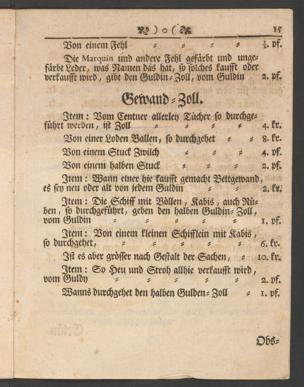 )o( 15
Von einem Fehl = = = = ½. pf.
Die Marquin und andere Fehl gefärbt und unge-
färbt Leder, was Namen das hat, so solches kaufft oder
verkaufft wird, gibt den Guldin-Zoll, vom Guldin 2. pf.
Gewand-Zoll.
Item: Vom Centner allerley Tücher so durchge-
führt werden, ist Zoll = = = = 4. kr.
Von einer Loden Ballen, so durchgehet = = 8. kr.
Von einem Stuck Zwilch = = = 4. pf.
Von einem halben Stuck = = = 2. pf.
Item: Wann einer hie kaufft gemacht Bettgewand,
es sey neu oder alt von jedem Guldin = = 2. kr.
Item: Die Schiff mit Böllen, Kabis, auch Rü-
ben, so durchgeführt, geben den halben Guldin-Zoll,
vom Guldin = = = = = 1. pf.
Item: Von einem kleinen Schifflein mit Kabis,
so durchgehet, = = = = = 6. kr.
Ist es aber grösser nach Gestalt der Sachen, = 10. kr.
Item: So Heu und Stroh allhie verkaufft wird,
vom Guldy = = = = = 2. pf.
Wanns durchgehet den halben Gulden-Zoll = 1. pf.
Obs-